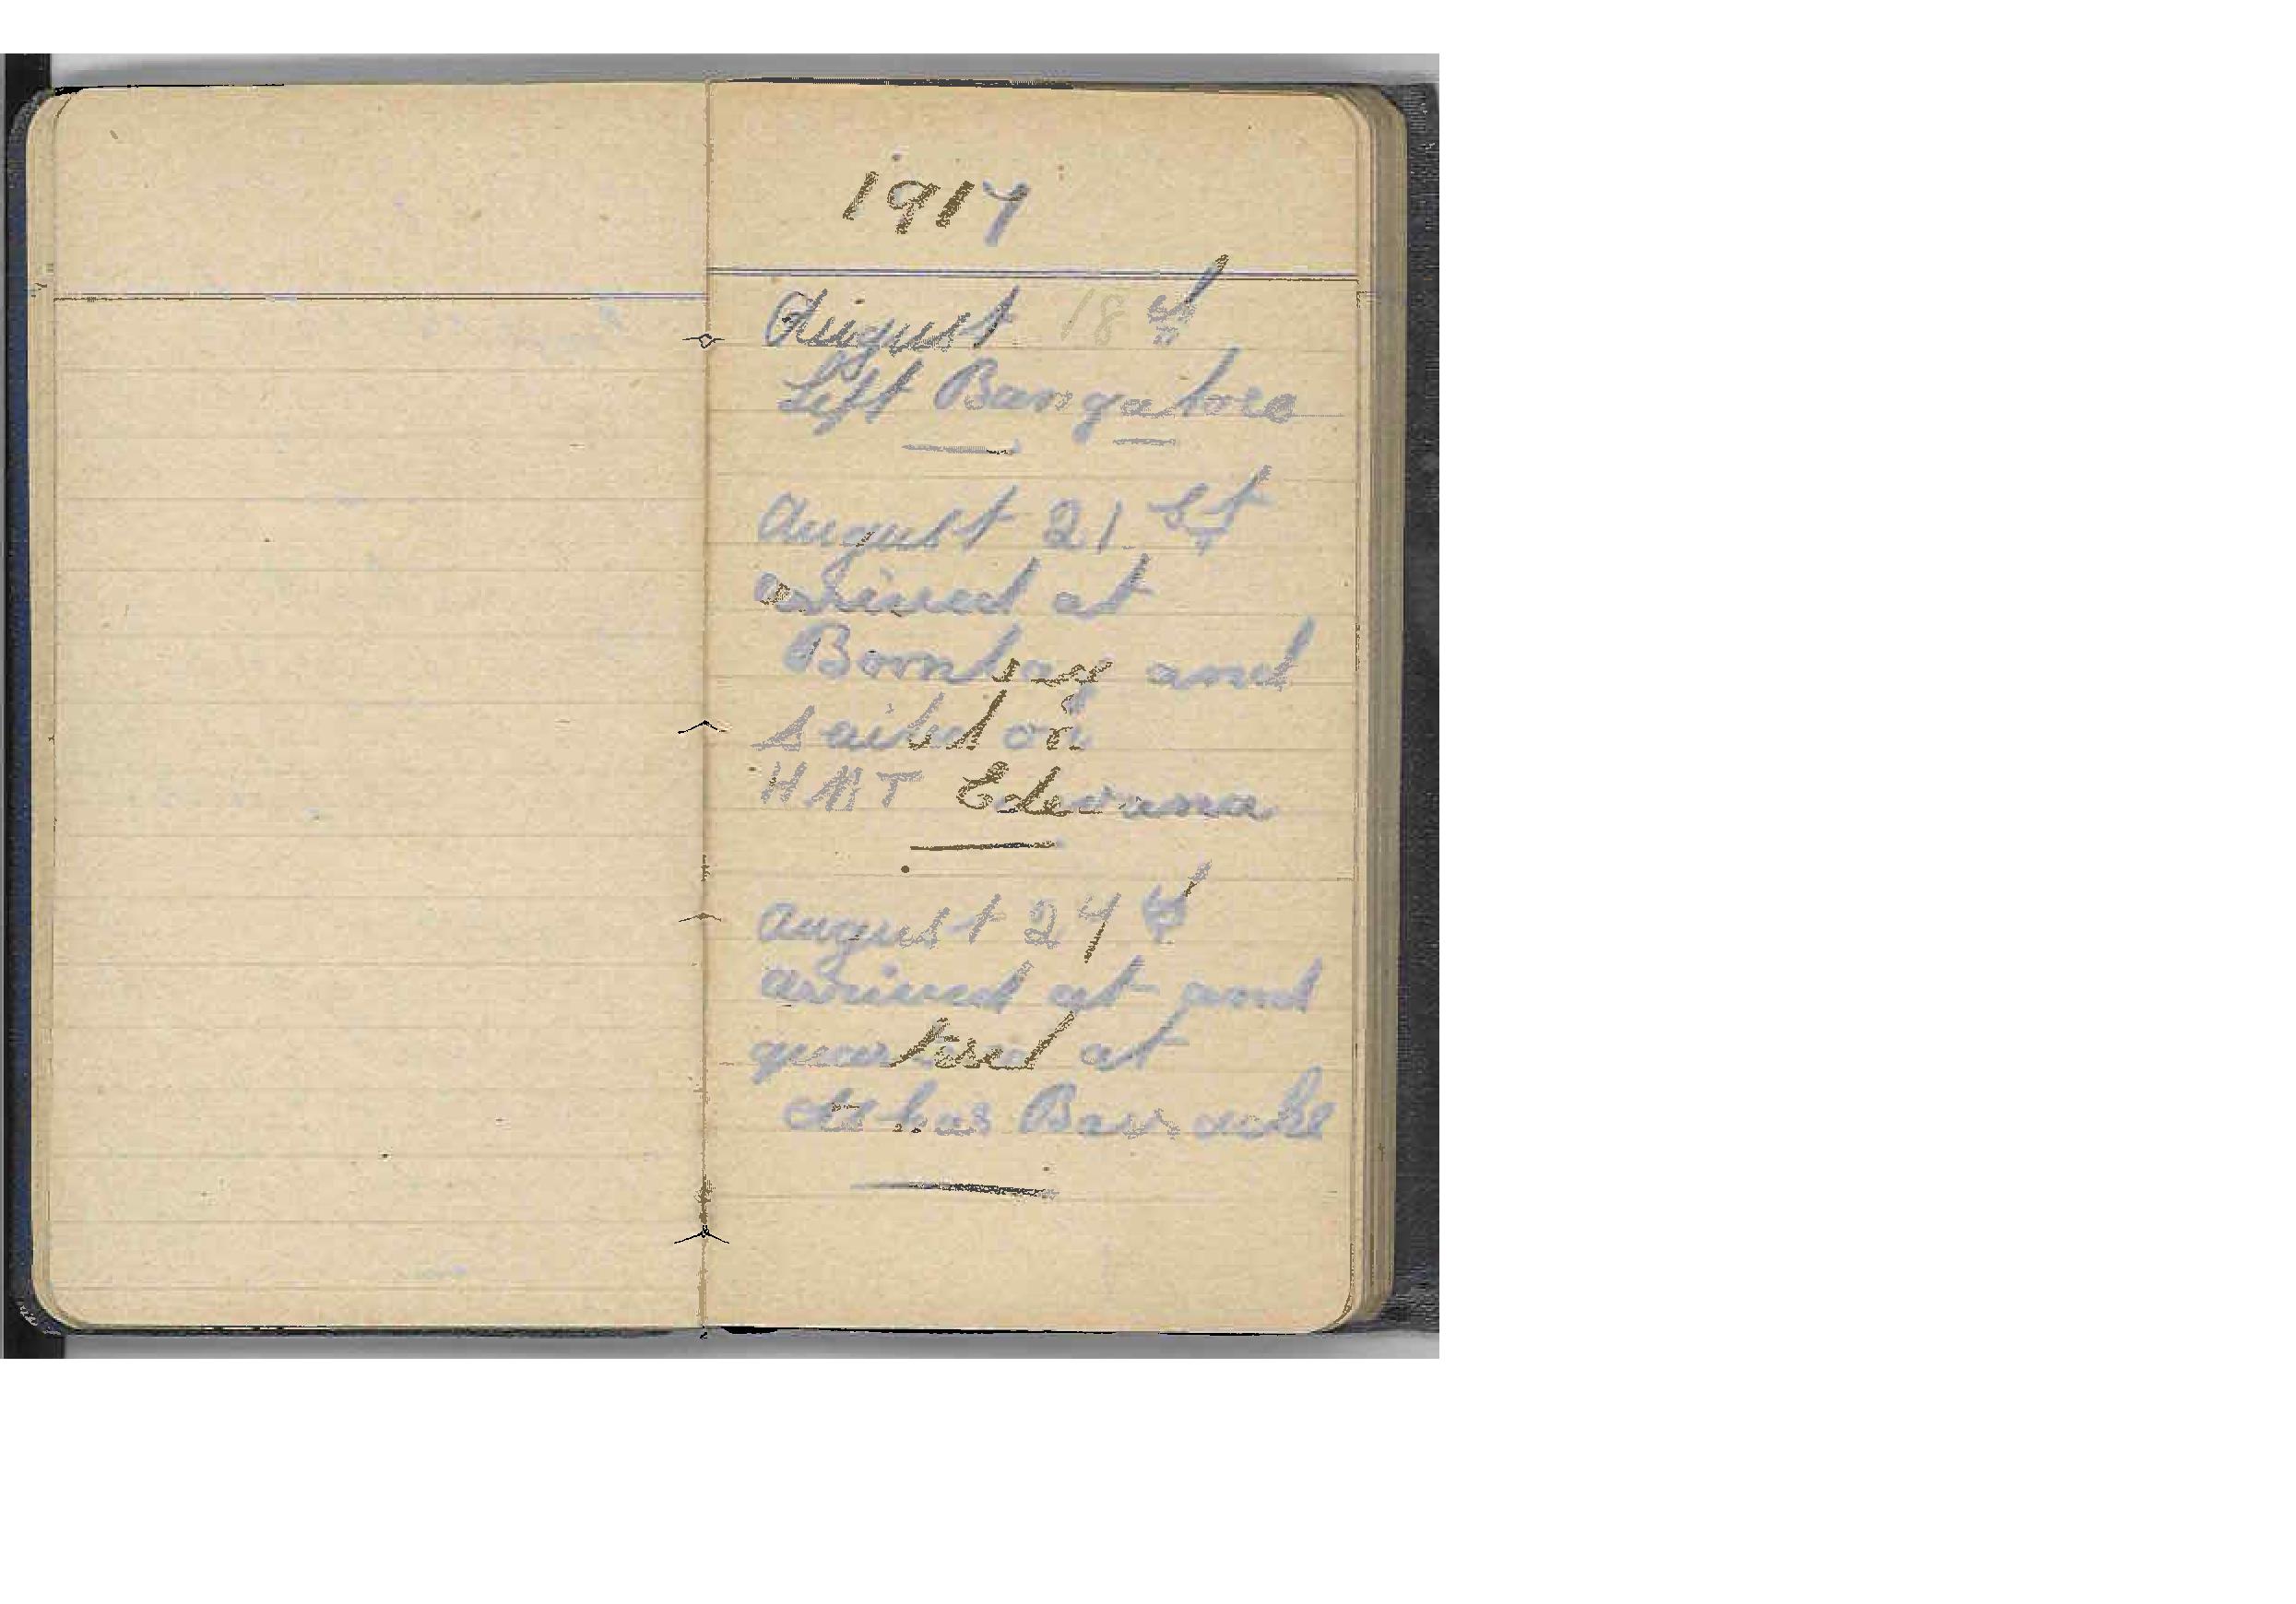 1917
August 18th
Left Bangalore
August 21st
arrived at
Bombay and
sailed on
HMT Edevana
August 27th
arrived at and
quartered at
Barracks